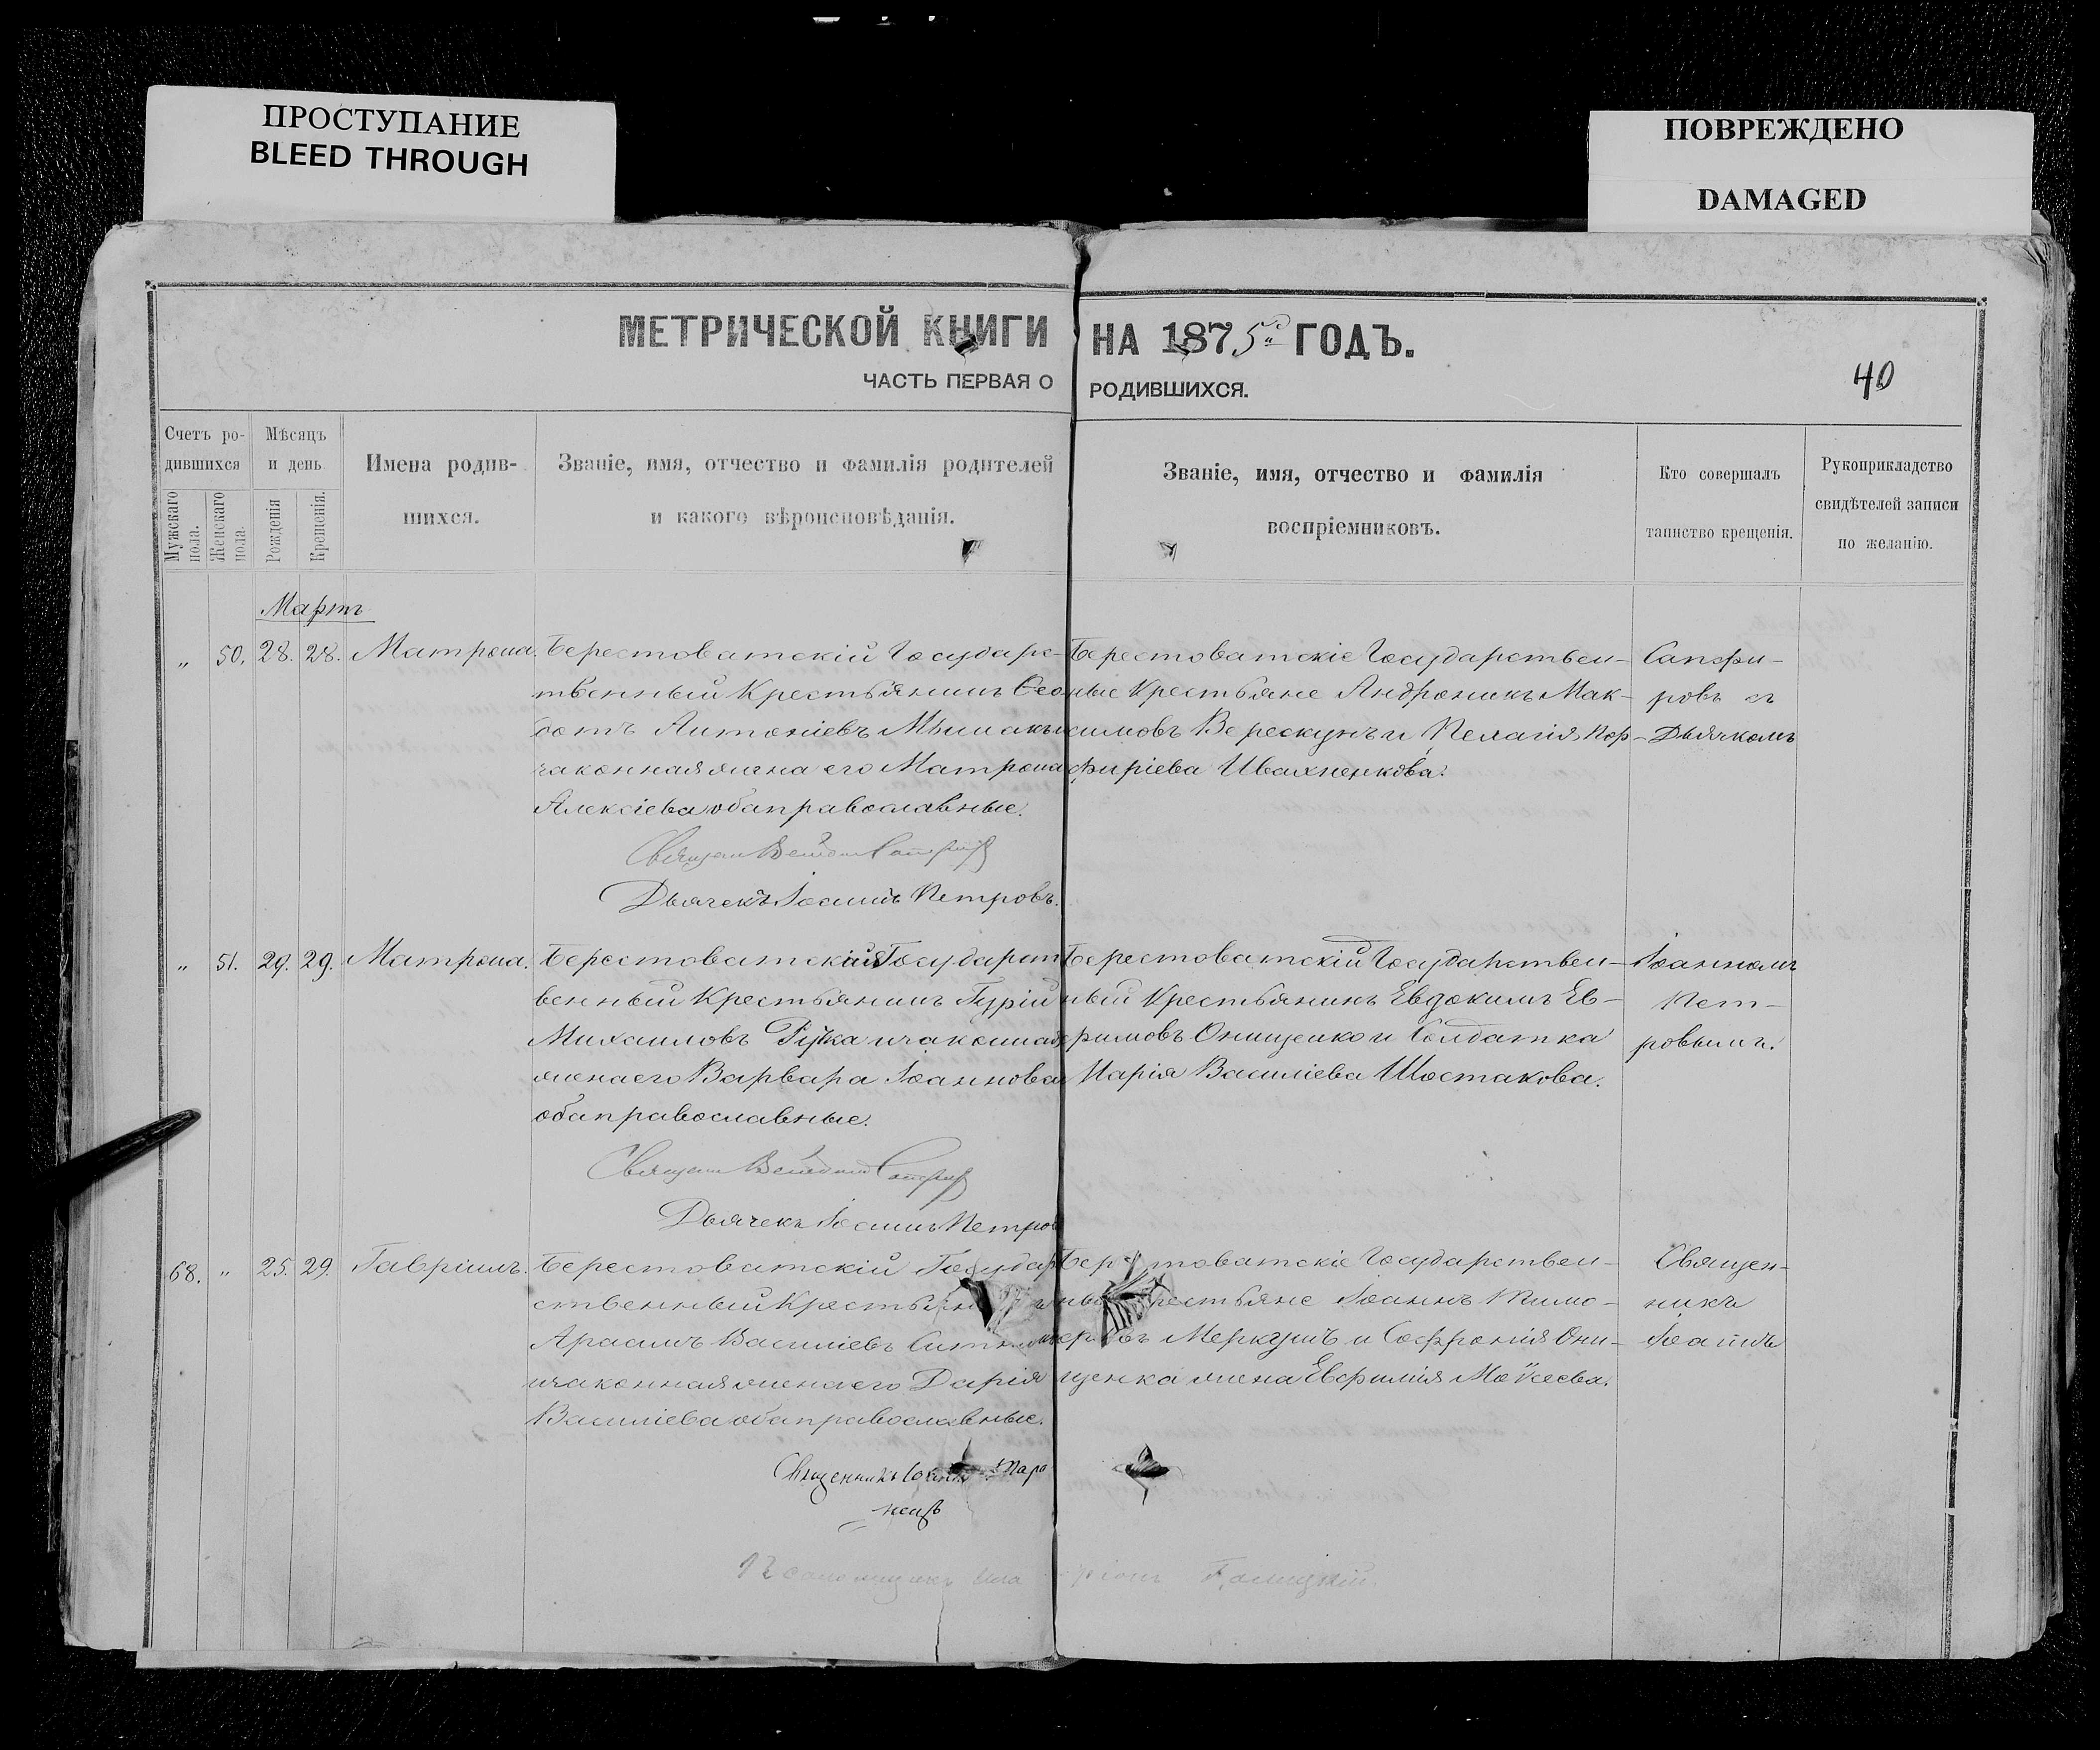 ПРОСТУПАНИЕ
BLEED THROUGH
ПОВРЕЖДЕНО
DAMAGED
МЕТРИЧЕСКОЙ КНИГИ НА 1875й ГОДЪ.
ЧАСТЬ ПЕРВАЯ О РОДИВШИХСЯ.
40
Счетъ ро-
дившихся
Мужскаго пола.
Женскаго пола
Мѣсяцъ
и день
Рожденія
Крещенія.
Имена родив-
шихся.
Званіе, имя, отчество и фамилія родителей
и какого вѣроисповѣданія.
Званіе, имя, отчество и фамилія
воспріемниковъ.
Кто совершалъ
таинство крещенія.
Рукоприкладство
свидѣтелей записи
по желанію.
Мартъ
„ 50. 28. 28. Матрона.
Берестоватскій Государс-
твенный Крестьянинъ Ѳео
дотъ Антоніевъ
законная жена его Матрона
Алексіева оба православные.
Дьячекъ Іоаннъ Петровъ.
Берестоватскіе Государствен-
ные Крестьяне Андроникъ Мак-
симовъ Верескунъ и Пелагія Пор-
фиріева Ивахненкова.
Сапфи-
ровъ съ
Дьячкомъ
„ 51. 29. 29. Матрона.
Берестоватскій Государст
венный Крестьянинъ Гурій
Михаиловъ и законная
жена его Варвара Іоаннова
оба православные.
Дьячекъ Іоаннъ Петров
Берестоватскій Государствен-
ный Крестьянинъ Евдокимъ Ев-
фимовъ Онищенко и Солдатка
Марія Василіева Шостакова.
Іоанномъ
Пет-
ровымъ.
68. „ 25. 29. Гавріилъ.
Берестоватскій Государ
ственный Крестьян
Василіевъ
и законная жена его Дарія
Василіева оба православные.
Священникъ Іоаннъ
Бер товатскіе Государствен-
ные Крестьяне Іоаннъ Тимо-
Меркунъ и Софронія Они-
щенка жена Евфимія Моѵсеева.
Священ-
никъ
Іоаннъ